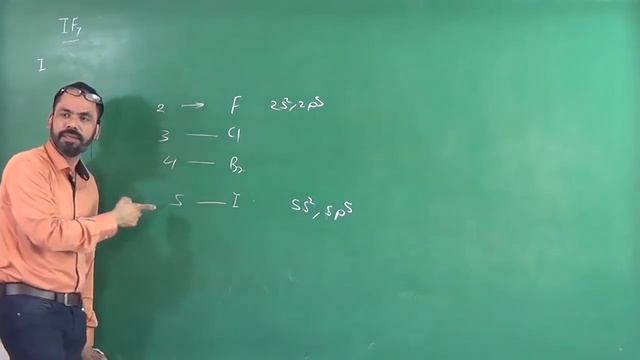 IF₇
I
2 → F 2s², 2p⁵
3 — Cl
4 — Br
5 — I 5s², 5p⁵